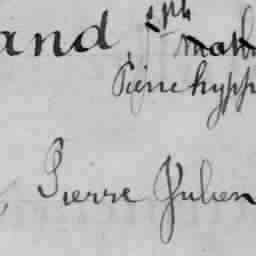 and
Pierre hypp
Pierre Julien